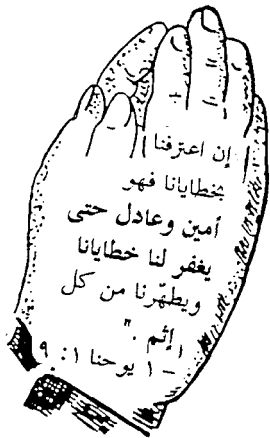 إن اعترفنا
بخطايانا فهو
أمين وعادل حتى
يغفر لنا خطايانا
ويطهّرنا من كل
إثم . "
– ١ يوحنا ١ : ٩